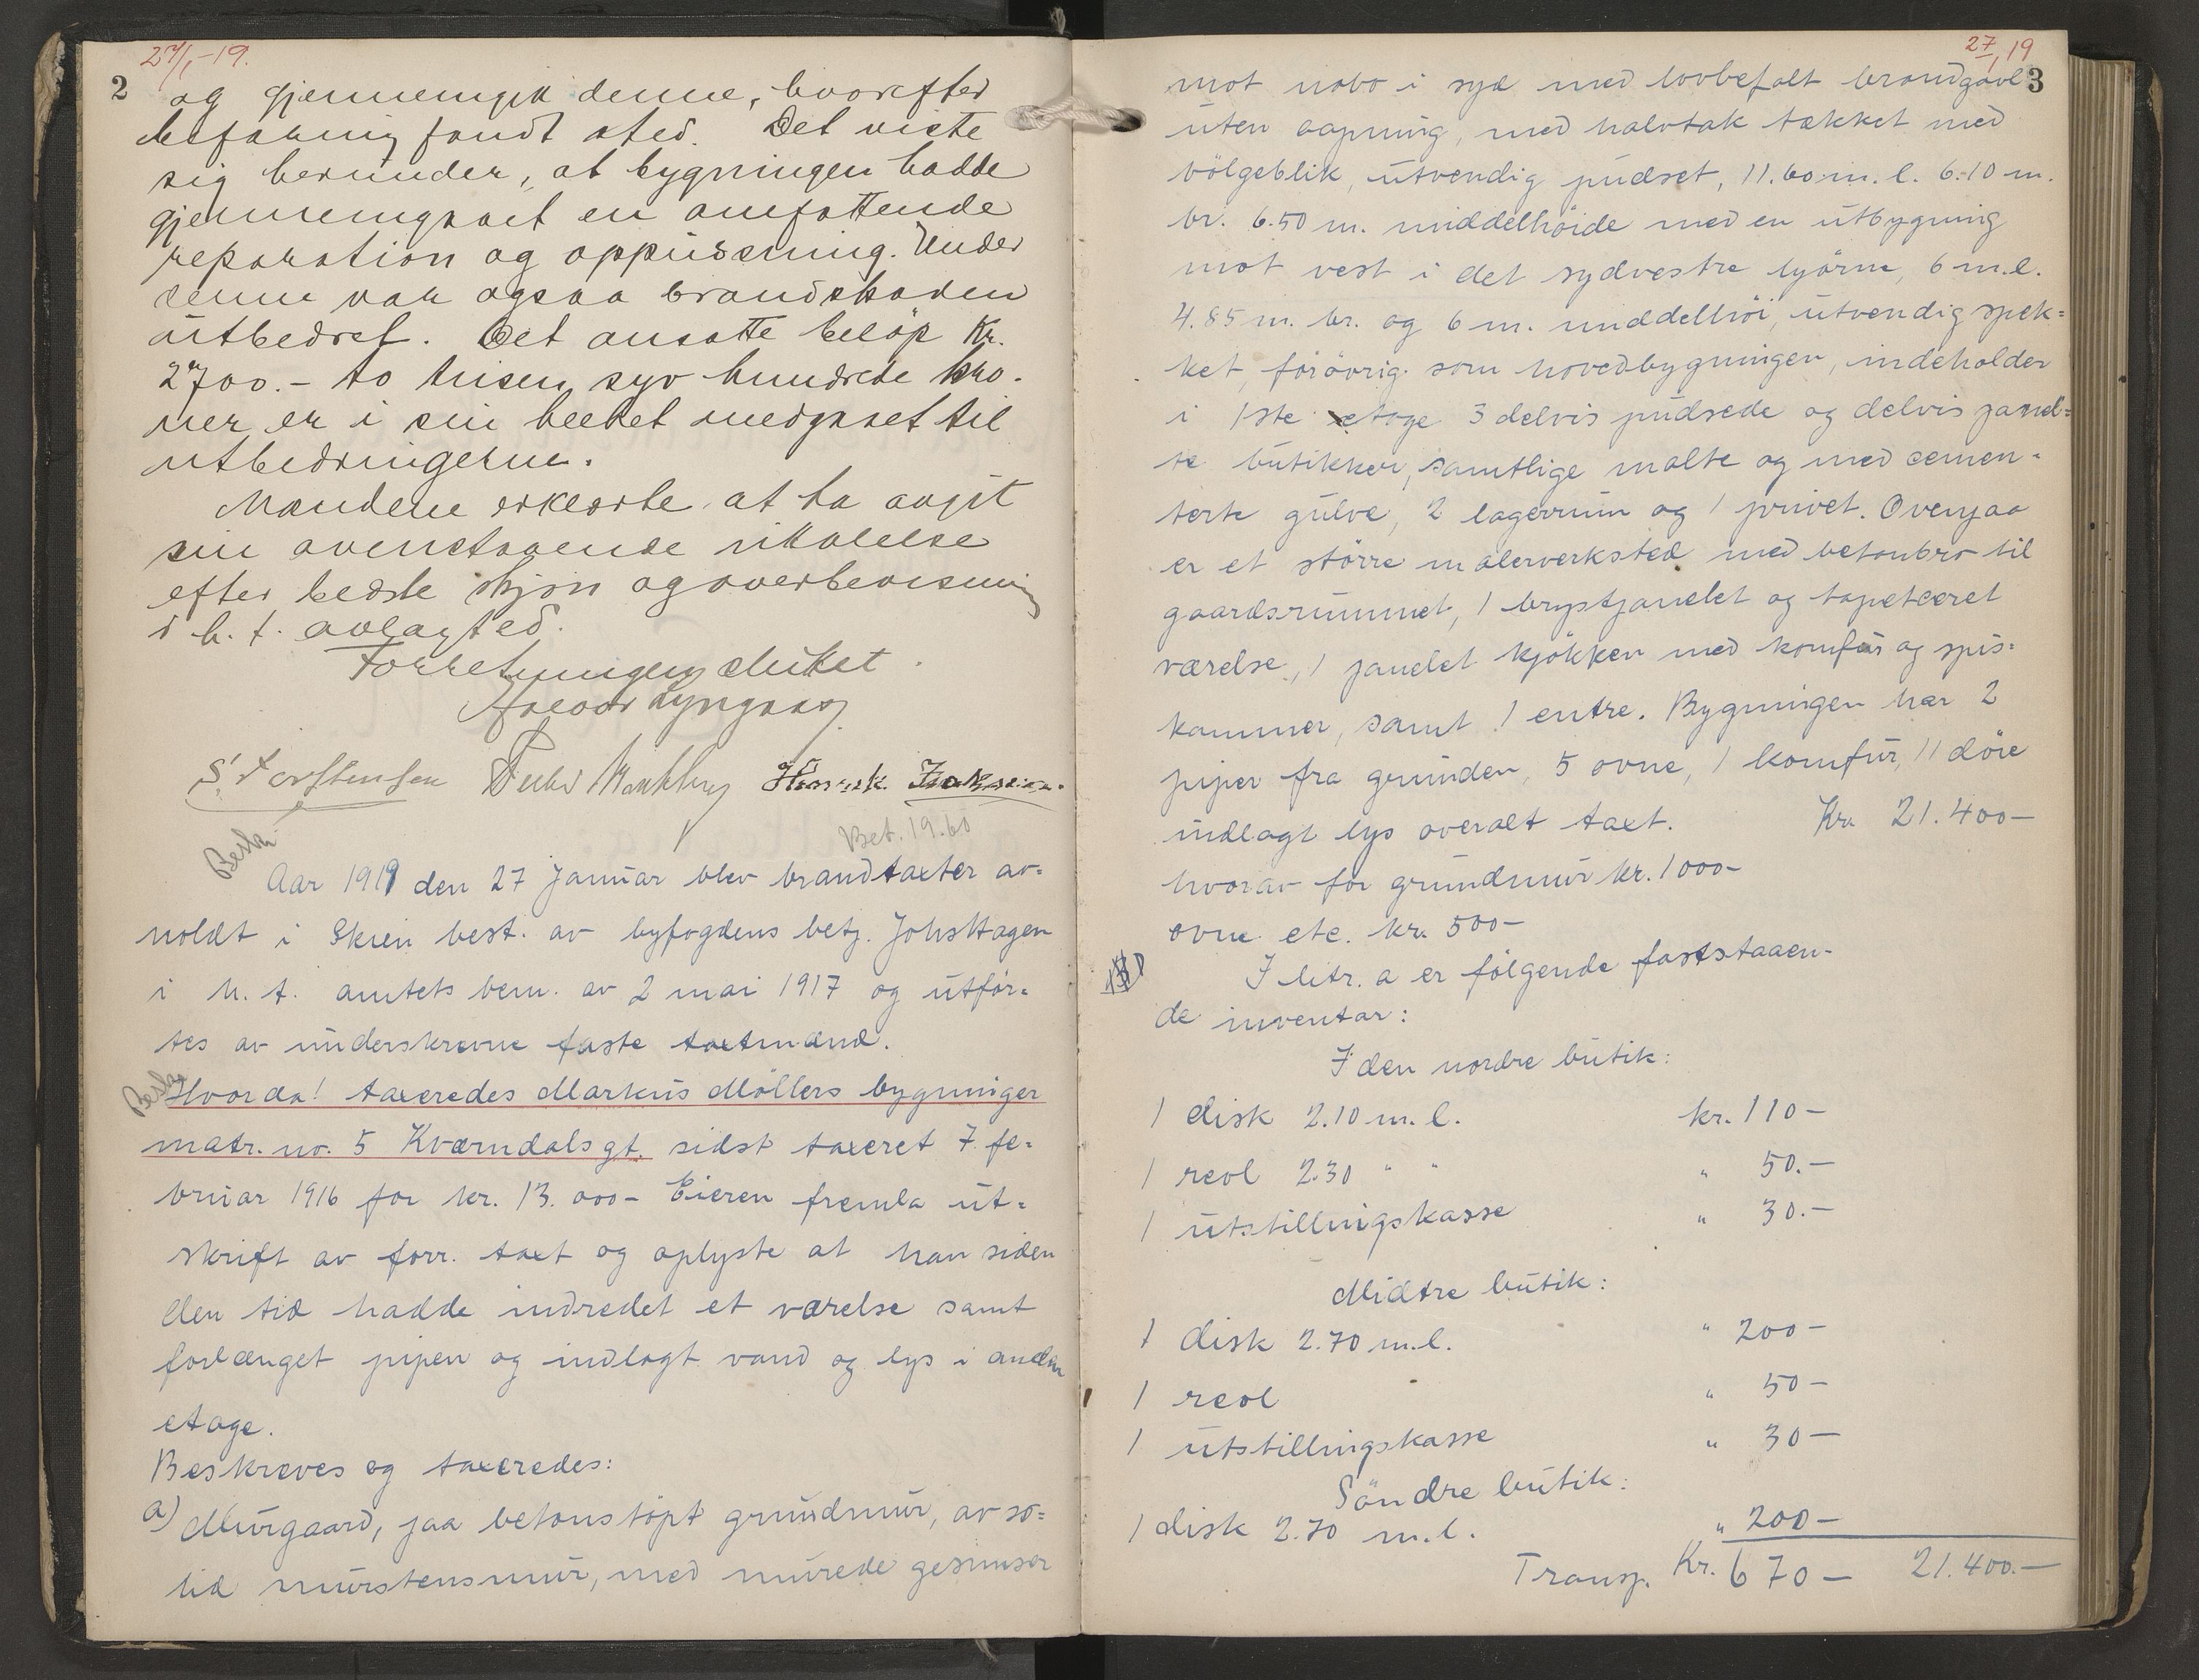 27/1-19.
2
og gjennemgik denne, hvorefter
befaring fandt sted. Det viste
sig herunder, at bygningen hadde
gjennemgaaet en omfattende
reparation og oppussning. Under
denne var ogsaa brandskaden
utbedret. Det ansatte beløp Kr.
2700.- to tusen syv hundrede kro-
ner er i sin helhet medgaaet til
utbedringerne.
Mændene erklærte at ha avgit
sin ovenstaaende uttalelse
efter bedste skjøn og overbevisning
i h. t. avlagt ed.
Forretningen sluttet.
S. Torstensen
Bet. 19.60
Besk.
Aar 1919 den 27 Januar blev brandtaxter av-
holdt i Skien best. av byfogdens betj. Johs Hagen
i h. t. amtets bem. av 2 mai 1917 og utfør-
tes av underskrevne faste taxtmænd.
Besk.
Hvorda! taxeredes Markus Møllers bygninger
matr. no. 5 Kværndalsgt. sidst taxeret 7 fe-
bruar 1916 for kr. 13.000- Eieren fremla ut-
skrift av forr. taxt og oplyste at han siden
den tid hadde indredet et værelse samt
forlænget pipen og indlagt vand og lys i anden
etage.
Beskreves og taxeredes:
a) Murgaard, paa betonstøpt grundmur, av so-
lid murstensmur, med murede gesimser
27/1 19
3
mot nabo i syd med lovbefalt brandgavl
uten aapning, med halvtak tækket med
bölgeblik, utvendig pudset, 11.60 m. l. 6.10 m.
br. 6.50 m. middelhöide med en utbygning
mot vest i det sydvestre hjörne, 6 m. l.
4.85 m. br. og 6 m. middelhöi, utvendig spek-
ket, forövrig som hovedbygningen, indeholder
i 1ste etage 3 delvis pudsede og delvis panel-
te butikker, samtlige malte og med cemen-
terte gulve, 2 lagerrum og 1 privet. Ovenpaa
er et större malerverksted med betonbro til
gaardsrummet, 1 brystpanelet og tapetceret
værelse, 1 panelet kjökken med komfur og spis-
kammer, samt 1 entre. Bygningen har 2
piper fra grunden, 5 ovne, 1 komfur, 11 döre
indlagt lys overalt taxt. Kr. 21.400-
hvorav for grundmur kr. 1000-
ovne etc. kr. 500-
I litr. a er fölgende faststaaen-
de inventar:
I den nordre butik:
1 disk 2.10 m. l. kr. 110-
1 reol 2.30 " " " 50.-
1 utstillingskasse " 30.-
Midtre butik:
1 disk 2.70 m. l. " 200-
1 reol " 50-
1 utstillingskasse " 30-
Söndre butik:
1 disk 2.70 m. l. " 200-
Transp. Kr. 670- 21.400.-